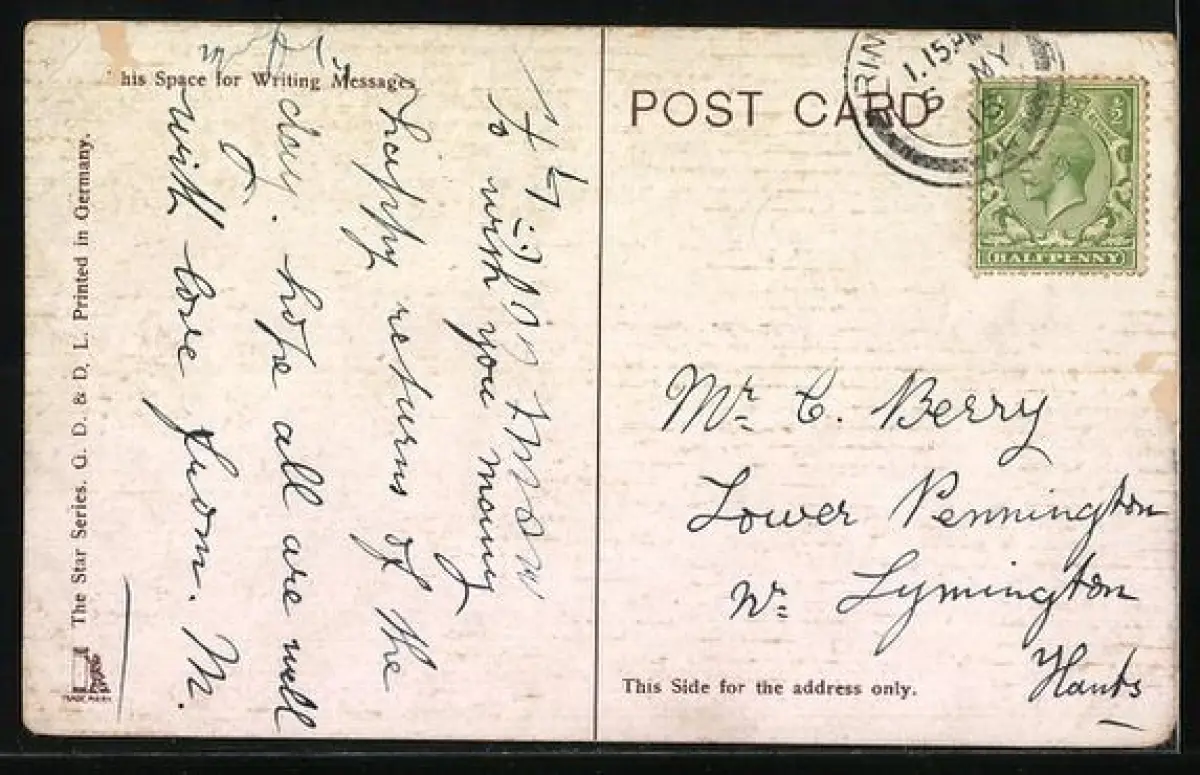 his Space for Writing Messages
to wish you many
happy returns of the
day. hope all are well
with love from. M.
The Star Series. G. D. & D. L. Printed in Germany.
TRADE MARK
POST CARD
1.15 PM
MY
HALFPENNY
Mr. C. Berry
Lower Pennington
Nr. Lymington
Hants
This Side for the address only.